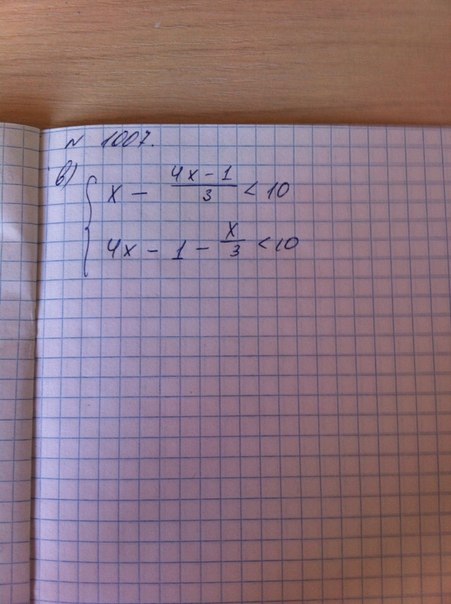 N 1007.
в) { x - (4x - 1)/3 < 10
4x - 1 - x/3 < 10